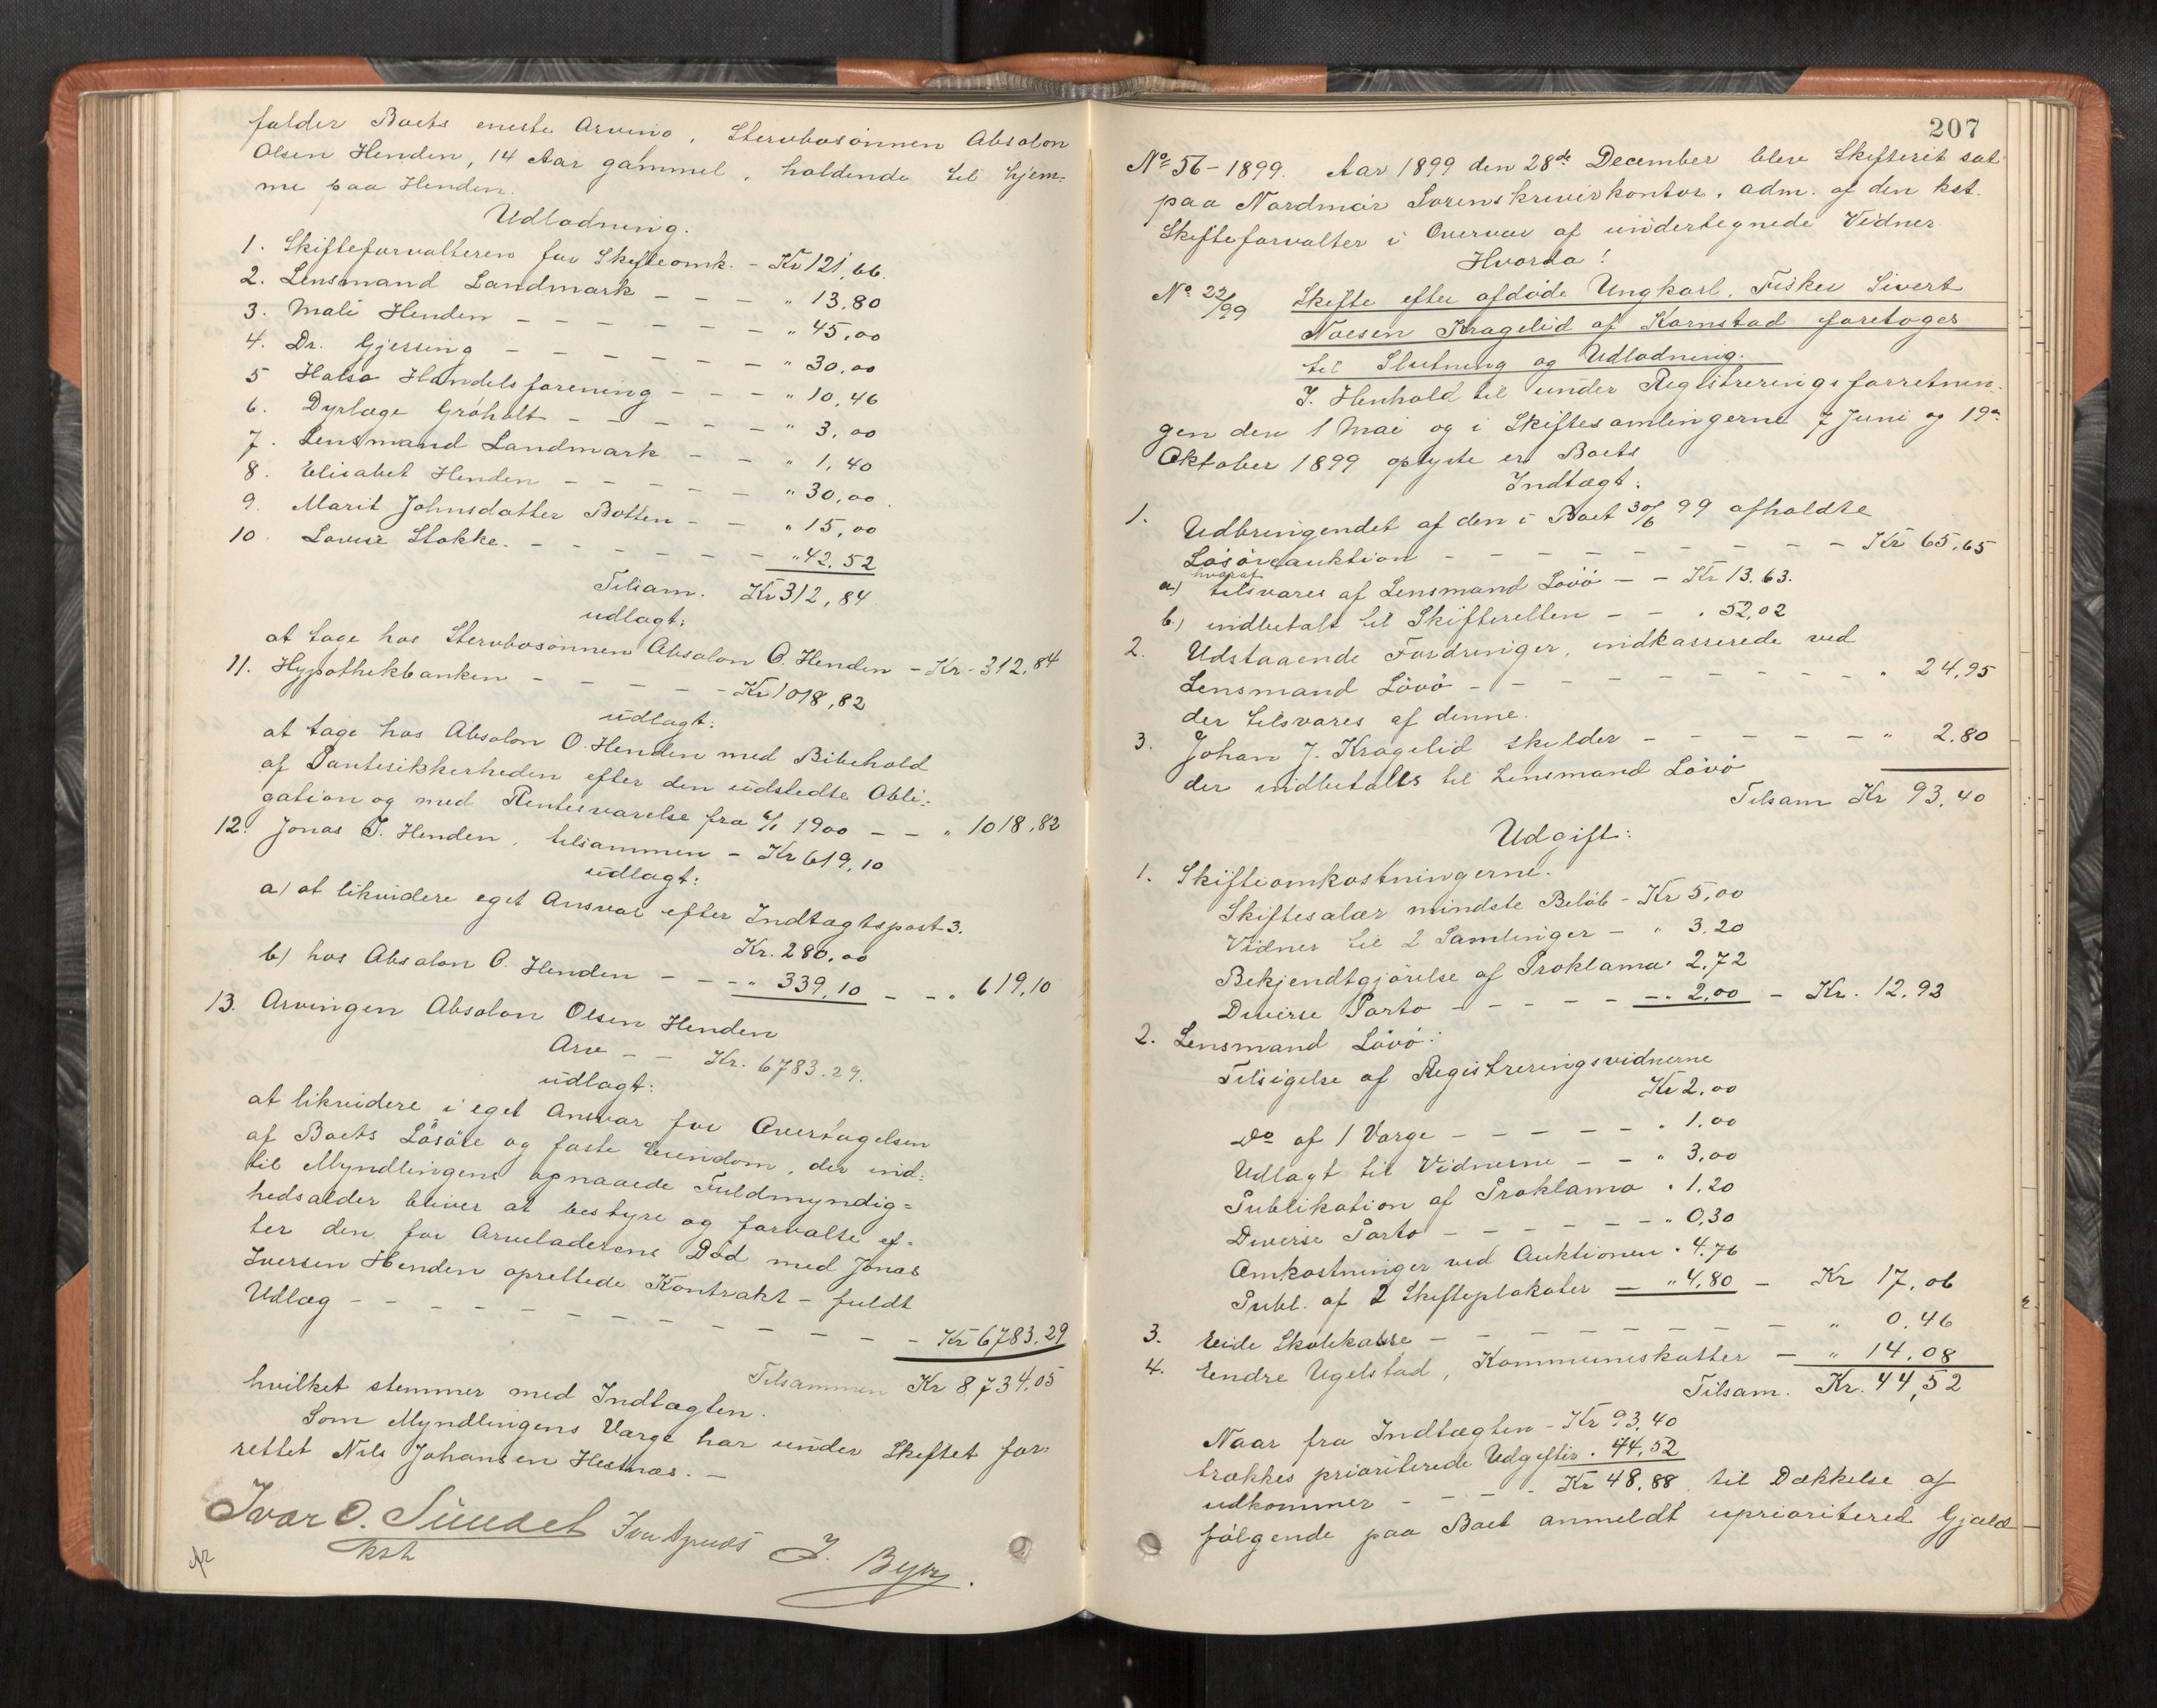 falder Boets eneste Arving, Stervbosönnen Absalon
Olsen Henden, 14 Aar gammel, holdende til hjem-
me paa Henden.
Udlodning.
1. Skifteforvalteren for Skifteomk. - Kr 121,66.
2. Lensmand Landmark - - - " 13,80
3. Mali Henden - - - - - - " 45,00
4. Dr. Gjessing - - - - - - " 30,00
5 Halsa Handelsforening - - - " 10,46
6. Dyrlæge Gröholt - - - - - " 3,00
7. Lensmand Landmark - - " 1,40
8. Elisabet Henden - - - - - " 30,00
9. Marit Johnsdatter Botten - - " 15,00
10. Lovise Stokke. - - - - - - " 42,52
Tilsam. Kr 312,84
udlagt:
at tage hos Stervbosönnen Absalon O. Henden - Kr - 312,84
11. Hypothekbanken - - - - - Kr 1018,82
udlagt:
at tage hos Absalon O. Henden med Bibehold
af Pantesikkerheden efter den udstedte Obli-
gation og med Rentesvarelse fra 6/1 1900 - - " 1018,82
12. Jonas I. Henden, tilsammen - Kr 619,10
udlagt:
a) at likvidere eget Ansvar efter Indtægtspost 3.
Kr. 280,00
b) hos Absalon O. Henden - - - " 339,10 - - " 619,10
13. Arvingen Absalon Olsen Henden
Arv - - Kr. 6783.29.
udlagt:
at likvidere i eget Ansvar for Overtagelsen
af Boets Lösöre og faste Eiendom, der ind-
til Myndlingens opnaaede Fuldmyndig-
hedsalder bliver at bestyre og forvalte ef-
ter den for Arveladerens Död med Jonas
Iversen Henden oprettede Kontrakt - fuldt
Udlæg - - - - - - - - - - Kr 6783.29
Tilsammen Kr 8734,05
hvilket stemmer med Indtægten.
Som Myndlingens Værge har under Skiftet for-
rettet Nils Johansen Hestnæs. -
Ivar O. Sundet
kst
207
No 56 - 1899. Aar 1899 den 28de December blev Skifteret sat
paa Nordmör Sorenskriverkontor, adm. af den kst.
Skifteforvalter i Overvær af undertegnede Vidner.
Hvorda!
No 22/99 Skifte efter afdöde Ungkarl, Fisker Sivert
Noesen Kragelid af Kornstad foretoges
til Slutning og Udlodning.
I. Henhold til under Registreringsforretnin-
gen den 1 Mai og i Skiftesamlingerne 7 Juni og 19de
Oktober 1899 oplyste er Boets
Indtægt:
1. Udbringendet af den i Boet 30/6 99 afholdte
Lösöreauktion - - - - - - - - - Kr 65,65
hvoraf
a) tilsvares af Lensmand Lövö - - Kr 13,63.
b) indbetalt til Skifteretten - - " 52,02
2. Udstaaende Fordringer, indkasserede ved
Lensmand Lövö - - - - - - - - - - " 24,95
der tilsvares af denne.
3. Johan J. Kragelid skylder - - - - - " 2,80
der indbetales til Lensmand Lövö
Tilsam Kr 93,40
Udgift:
1. Skifteomkostningerne.
Skiftesalær mindste Belöb - Kr 5,00
Vidner til 2 Samlinger - " 3,20
Bekjendtgjörelse af Proklama " 2,72
Diverse Porto - - - - - " 2,00 - Kr. 12,92
2. Lensmand Lövö:
Tilsigelse af Registreringsvidnerne
Kr 2,00
Do af 1 Værge - - - - - " 1,00
Udlagt til Vidnerne - - " 3,00
Publikation af Proklama " 1,20
Diverse Porto - - - - - " 0,30
Omkostninger ved Auktionen " 4,76
Publ. af 2 Skifteplakater - " 4,80 - Kr 17,06
3. Eide Skolekasse - - - - - - - - " 0,46
4. Endre Ugelstad, Kommuneskatter - " 14,08
Tilsam. Kr. 44,52
Naar fra Indtægten - Kr 93,40
trækkes prioriterede Udgifter " 44,52
udkommer - - - - Kr 48,88 til Dækkelse af
fölgende paa Boet anmeldt uprioriteret Gjæld